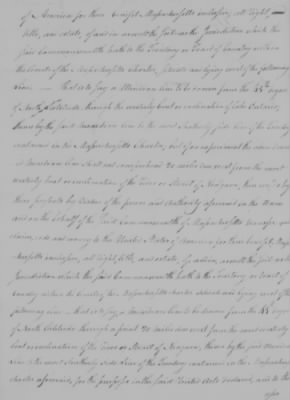 of America for their benefit, Massachusetts inclusive, all Right,
title, and estate, of and in as well the Soil as the Jurisdiction which the
said Commonwealth hath to the Territory or Tract of Country within
the limits of the Massachusetts Charter, situate and lying west of the following
line — That is to say a Meridian line to be drawn from the 45th degree
of North Latitude through the westerly bent or inclination of Lake Ontario,
thence by the said Meridian line to the most Southerly side line of the Territory
contained in the Massachusetts Charter, but if on experiment the above described
Meridian line shall not comprehend 20 miles due west from the most
westerly bent or inclination of the River or Strait of Niagara, then we do by
these presents by virtue of the power and authority aforesaid in the Name
and on the behalf of the said Commonwealth of Massachusetts transfer, quit
claim, cede and convey to the United States of America for their benefit, Massa-
chusetts inclusive, all right, title, and estate, of and in, as well the Soil as the
Jurisdiction which the said Commonwealth hath to the Territory or tract of
Country within the limits of the Massachusetts charter situate and lying west of the
following line — that is to say, a Meridian line to be drawn from the 45th degree
of North Latitude through a point 20 miles due west from the most westerly
bent or inclination of the River or Strait of Niagara, thence by the said Meridian
line to the most Southerly side line of the Territory contained in the Massachusetts
charter aforesaid, for the purposes in the said recited Acts declared, and to the
uses